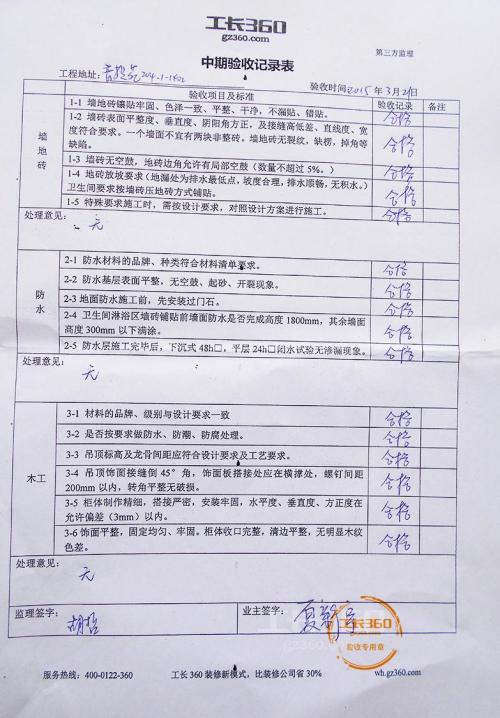 工长360
gz360.com
第三方监理
中期验收记录表
工程地址: 204-1-1402
验收时间2015年3月21日
验收项目及标准 验收记录 备注
墙地砖
1-1 墙地砖镶贴牢固、色泽一致、平整、干净,不漏贴、错贴。 合格
1-2 墙砖表面平整度、垂直度、阴阳角方正,及接缝高低差、直线度、宽
度符合要求。一个墙面不宜有两块非整砖。墙地砖无裂纹,缺楞,掉角等 合格
缺陷。
1-3 墙砖无空鼓,地砖边角允许有局部空鼓(数量不超过 5%。) 合格
1-4 地砖放坡要求(地漏处为排水最低点,坡度合理,排水顺畅,无积水。)
卫生间要求按墙砖压地砖方式铺贴。 合格
1-5 特殊要求施工时,需按设计要求,对照设计方案进行施工。 合格
处理意见:
无
防水
2-1 防水材料的品牌、种类符合材料清单要求。 合格
2-2 防水基层表面平整,无空鼓、起砂、开裂现象。 合格
2-3 地面防水施工前,先安装过门石。 合格
2-4 卫生间淋浴区墙砖铺贴前墙面防水是否完成高度 1800mm,其余墙面
高度 300mm 以下满涂。 合格
2-5 防水层施工完毕后,下沉式 48h□,平层 24h□闭水试验无渗漏现象。 合格
处理意见:
无
木工
3-1 材料的品牌、级别与设计要求一致 合格
3-2 是否按要求做防水、防潮、防腐处理。 合格
3-3 吊顶标高及龙骨间距应符合设计要求及工艺要求。 合格
3-4 吊顶饰面接缝倒 45°角,饰面板搭接处应在横撑处,螺钉间距
200mm 以内,转角平整无破损。 合格
3-5 柜体制作精细,搭接严密,安装牢固,水平度、垂直度、方正度在
允许偏差(3mm)以内。 合格
3-6 饰面平整,固定均匀、牢固。柜体收口完整,清边平整,无明显木纹
色差。 合格
处理意见:
无
监理签字:
胡哲
业主签字:
工长360
验收专用章
服务热线:400-0122-360 工长 360 装修新模式,比装修公司省 30% wh.gz360.com